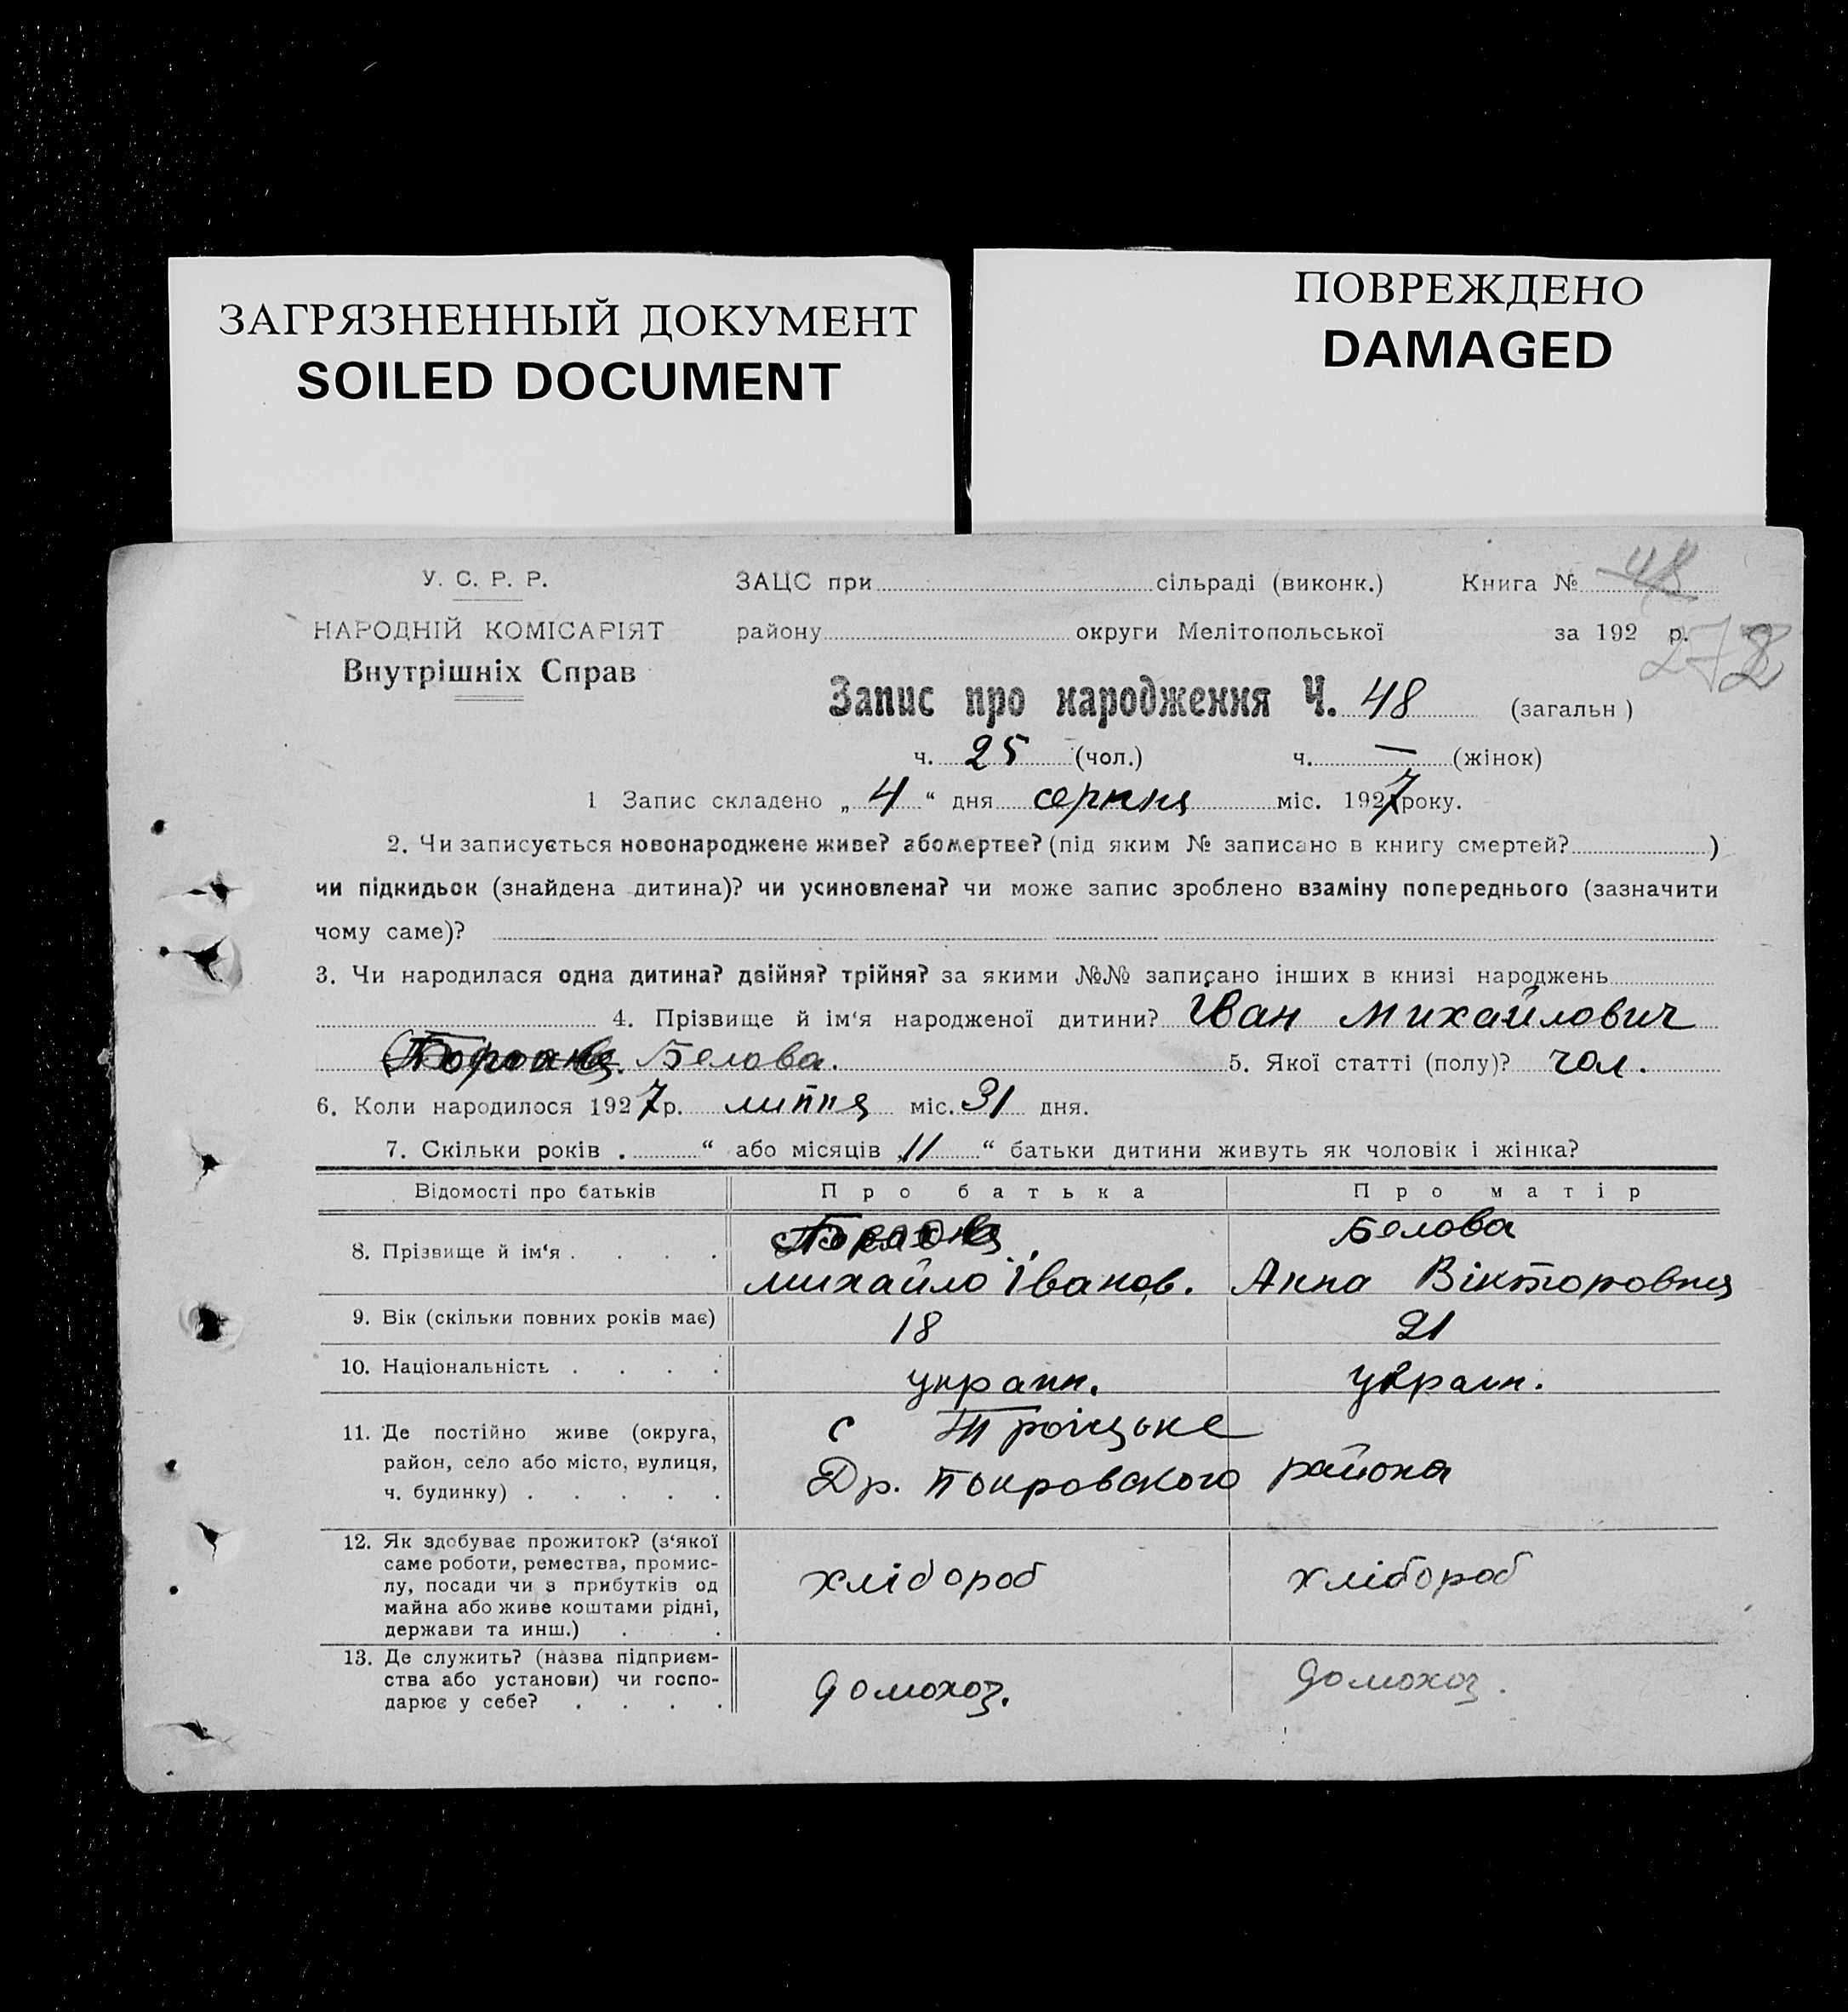 ЗАГРЯЗНЕННЫЙ ДОКУМЕНТ
SOILED DOCUMENT
ПОВРЕЖДЕНО
DAMAGED
У. С. Р. Р.
НАРОДНІЙ КОМІСАРІЯТ
Внутрішніх Справ
ЗАЦС при сільраді (виконк.) Книга № 48
району округи Мелітопольської за 192 р.
272
Запис про народження Ч. 48 (загальн)
ч. 25 (чол.) ч. — (жінок)
1 Запис складено „ 4 “ дня серпня міс. 1927 року.
2. Чи записується новонароджене живе? або мертве? (під яким № записано в книгу смертей? )
чи підкидьок (знайдена дитина)? чи усиновлена? чи може запис зроблено взаміну попереднього (зазначити
чому саме)?
3. Чи народилася одна дитина? двійня? трійня? за якими №№ записано інших в книзі народжень
4. Прізвище й ім‘я народженої дитини? Іван Михайлович
Белова. 5. Якої статті (полу)? чол.
6. Коли народилося 1927 р. липня міс. 31 дня.
7. Скільки років . “ або місяців 11 “ батьки дитини живуть як чоловік і жінка?
Відомості про батьків Про батька Про матір
8. Прізвище й ім‘я . . . . Белова
Михайло Іванов. Анна Вікторовня
9. Вік (скільки повних років має) 18 21
10. Національність . . . . украин. украин.
11. Де постійно живе (округа, район, село або місто, вулиця, ч. будинку) . . . . .
с Троіцьке
Др. Покровского района
12. Як здобуває прожиток? (з‘якої
саме роботи, ремества, промис-
лу, посади чи з прибутків од
майна або живе коштами рідні,
держави та инш.) . . хлібороб хлібороб
13. Де служить? (назва підприєм-
ства або установи) чи госпо-
дарює у себе? . . . . домохоз. домохоз.